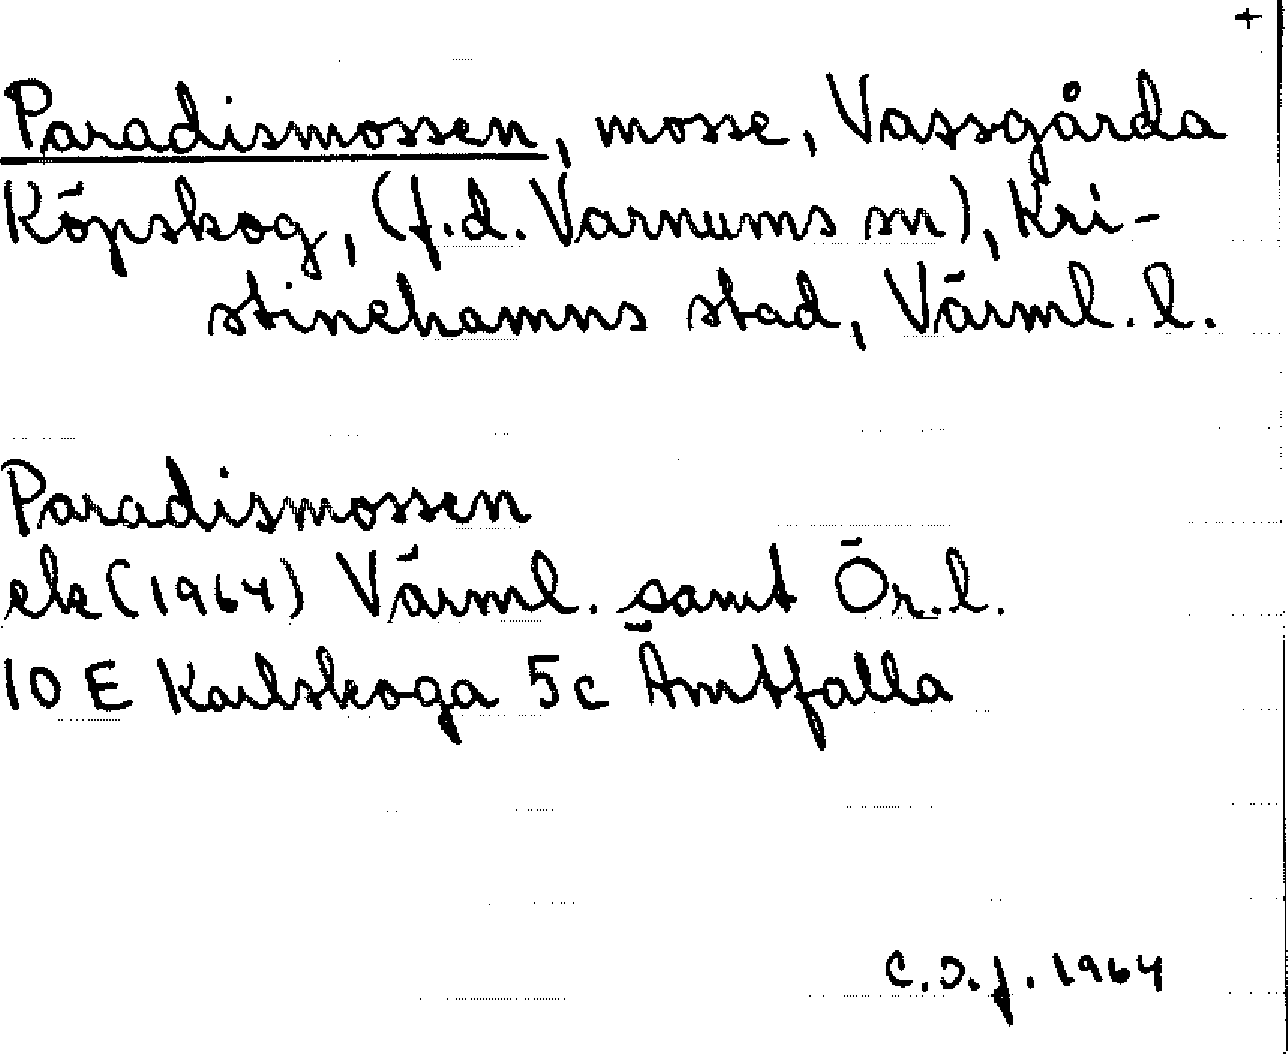 +
Paradismossen, mosse, Vassgårda
Köpskog, (f.d. Varnums sn), Kri-
stinehamns stad, Värml. l.
Paradismossen
ek (1964) Värml. samt Ör. l.
10 E Karlskoga 5c Ämtfalla
C.O.f. 1964